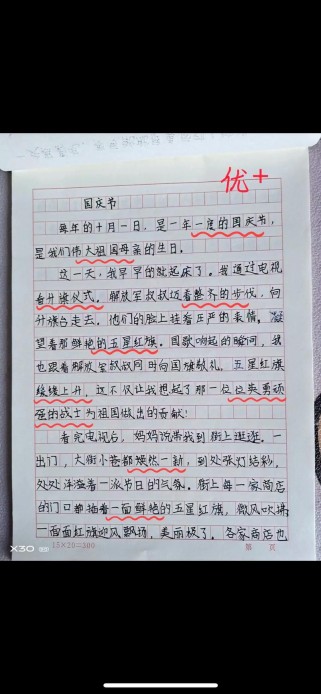 优+
国庆节
每年的十月一日，是一年一度的国庆节，
是我们伟大祖国母亲的生日。
这一天，我早早的就起床了。我通过电视
看升旗仪式。解放军叔叔迈着整齐的步伐，向
升旗台走去。他们的脸上挂着庄严的表情。凝
望着那鲜艳的五星红旗。国歌响起的瞬间，我
也跟着解放军叔叔同时向国旗敬礼。五星红旗
缓缓上升，这不仅让我想起了那一位位英勇顽
强的战士为祖国做出的贡献！
看完电视台，妈妈说带我到街上逛逛。一
出门，大街小巷都焕然一新，到处张灯结彩，
处处洋溢着一派节日的气氛。街上每一家商店
的门口都插着一面鲜艳的五星红旗，微风吹拂
一面面红旗迎风飘扬，美丽极了。各家商店也
X30
15×20=300
第 页